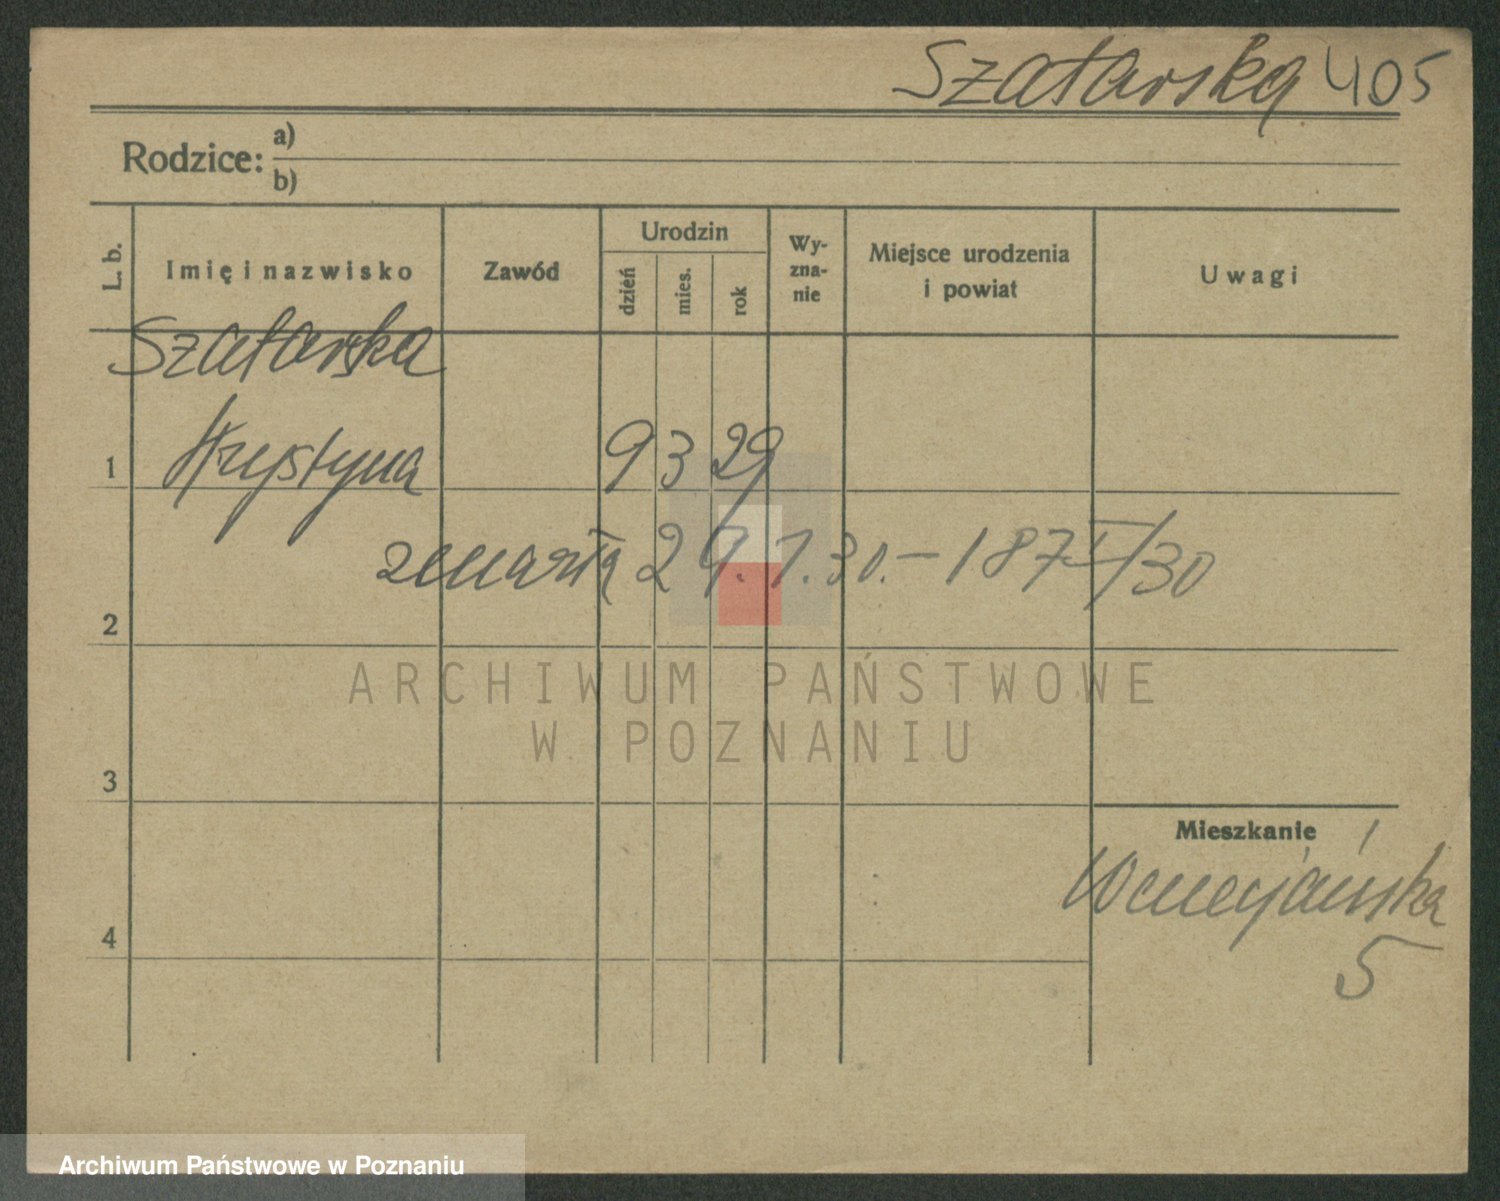 Szatarska 405
Rodzice: a)
b)
L. b.
Imię i nazwisko
Zawód
Urodzin
dzień
mies.
rok
Wy-
zna-
nie
Miejsce urodzenia
i powiat
Uwagi
Szatarska
1 Krystyna 9 3 29
zmarła 29.1.30. – 187 I/30
2
ARCHIWUM PAŃSTWOWE
W POZNANIU
3
Mieszkanie
Wenecjańska
4
5
Archiwum Państwowe w Poznaniu